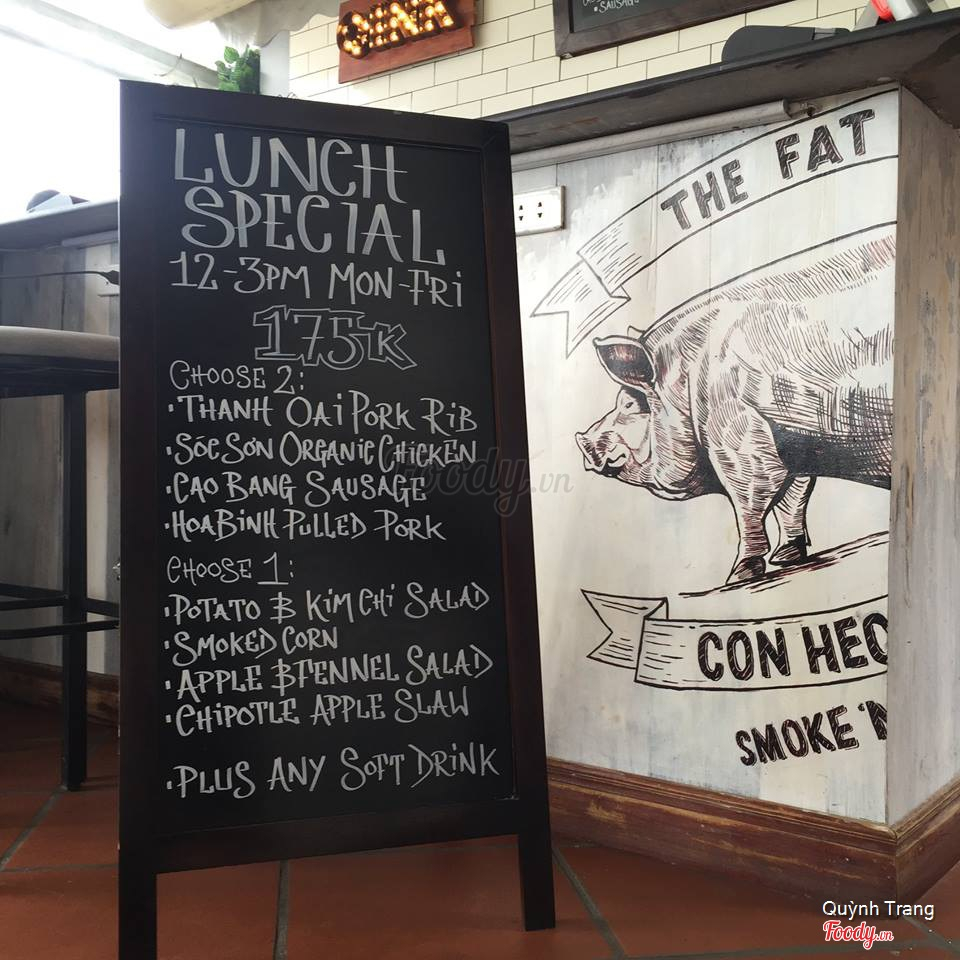 SAUSAGE
LUNCH
SPECIAL
12-3PM MON-FRI
175K
CHOOSE 2:
• THANH OAI PORK RIB
• SÓC SƠN ORGANIC CHICKEN
• CAO BANG SAUSAGE
• HOA BINH PULLED PORK
CHOOSE 1:
• POTATO & KIM CHI SALAD
• SMOKED CORN
• APPLE & FENNEL SALAD
• CHIPOTLE APPLE SLAW
• PLUS ANY SOFT DRINK
THE FAT
CON HEO
SMOKE 'N
Foody.vn
Quỳnh Trang
Foody.vn